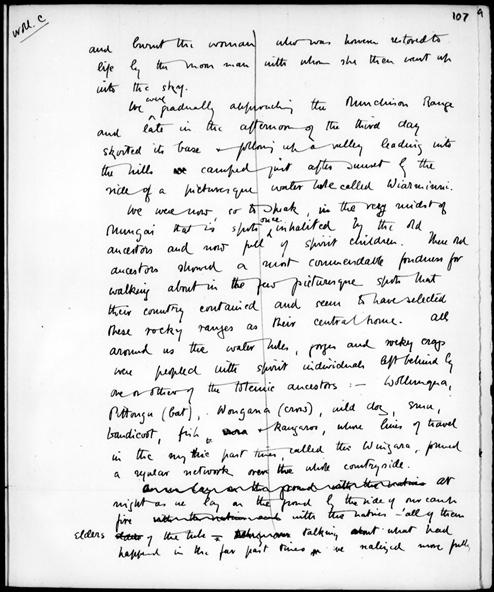 Woll. C
107 a
and burnt the woman who was however restored to
life by the moon man with whom she then went up
into the sky.
We were gradually approaching the Murchison Range
and late in the afternoon of the third day
skirted its base & following up a valley leading into
the hills we camped just after sunset by the
side of a picturesque water hole called Wiarminni.
We were now, so to speak, in the very midst of
Mungai that is spots once inhabited by the old
ancestors and now full of spirit children. These old
ancestors showed a most commendable fondness for
walking about in the few picturesque spots that
their country contained and seem to have selected
these rocky ranges as their central home. All
around us the water holes, gorges and rocky crags
were peopled with spirit individuals left behind by
one or other of the totemic ancestors :— Wollunqua,
Pittongu (bat), Wongana (crow), wild dog, emu,
bandicoot, fish, & kangaroo, whose lines of travel
in the mythic past times, called the Wingara, formed
a regular network over the whole countryside.
as we lay on the ground with the natives at
night as we lay on the ground by the side of our camp
fire with the natives and with the natives – all of them
elders of the tribe – talking about what had
happened in the far past times we realized more fully